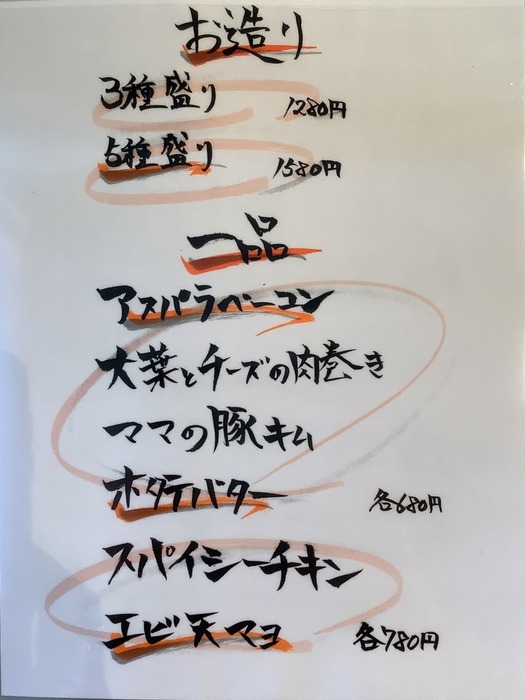 お造り
3種盛り 1280円
5種盛り 1580円
一品
アスパラベーコン
大葉とチーズの肉巻き
ママの豚キム
ホタテバター 各680円
スパイシーチキン
エビ天マヨ 各780円